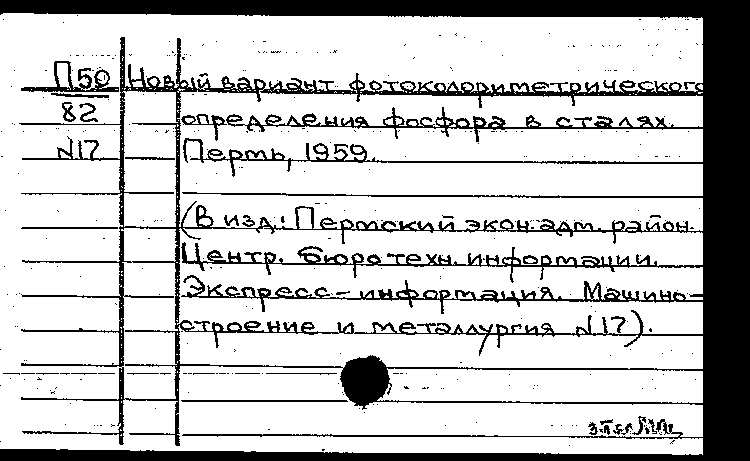 П50 Новый вариант фотоколориметрического
82 определения фосфора в сталях.
N17 Пермь, 1959.
(В изд.: Пермский экон. адм. район.
Центр. бюро техн. информации.
Экспресс-информация. Машино-
строение и металлургия N17).